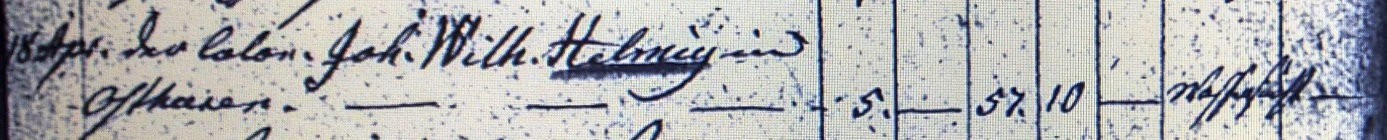 18 Apr. der Colon. Joh. Wilh. Helmig in
Osthusen. — — — 5. — 57. 10 — Wassersucht —